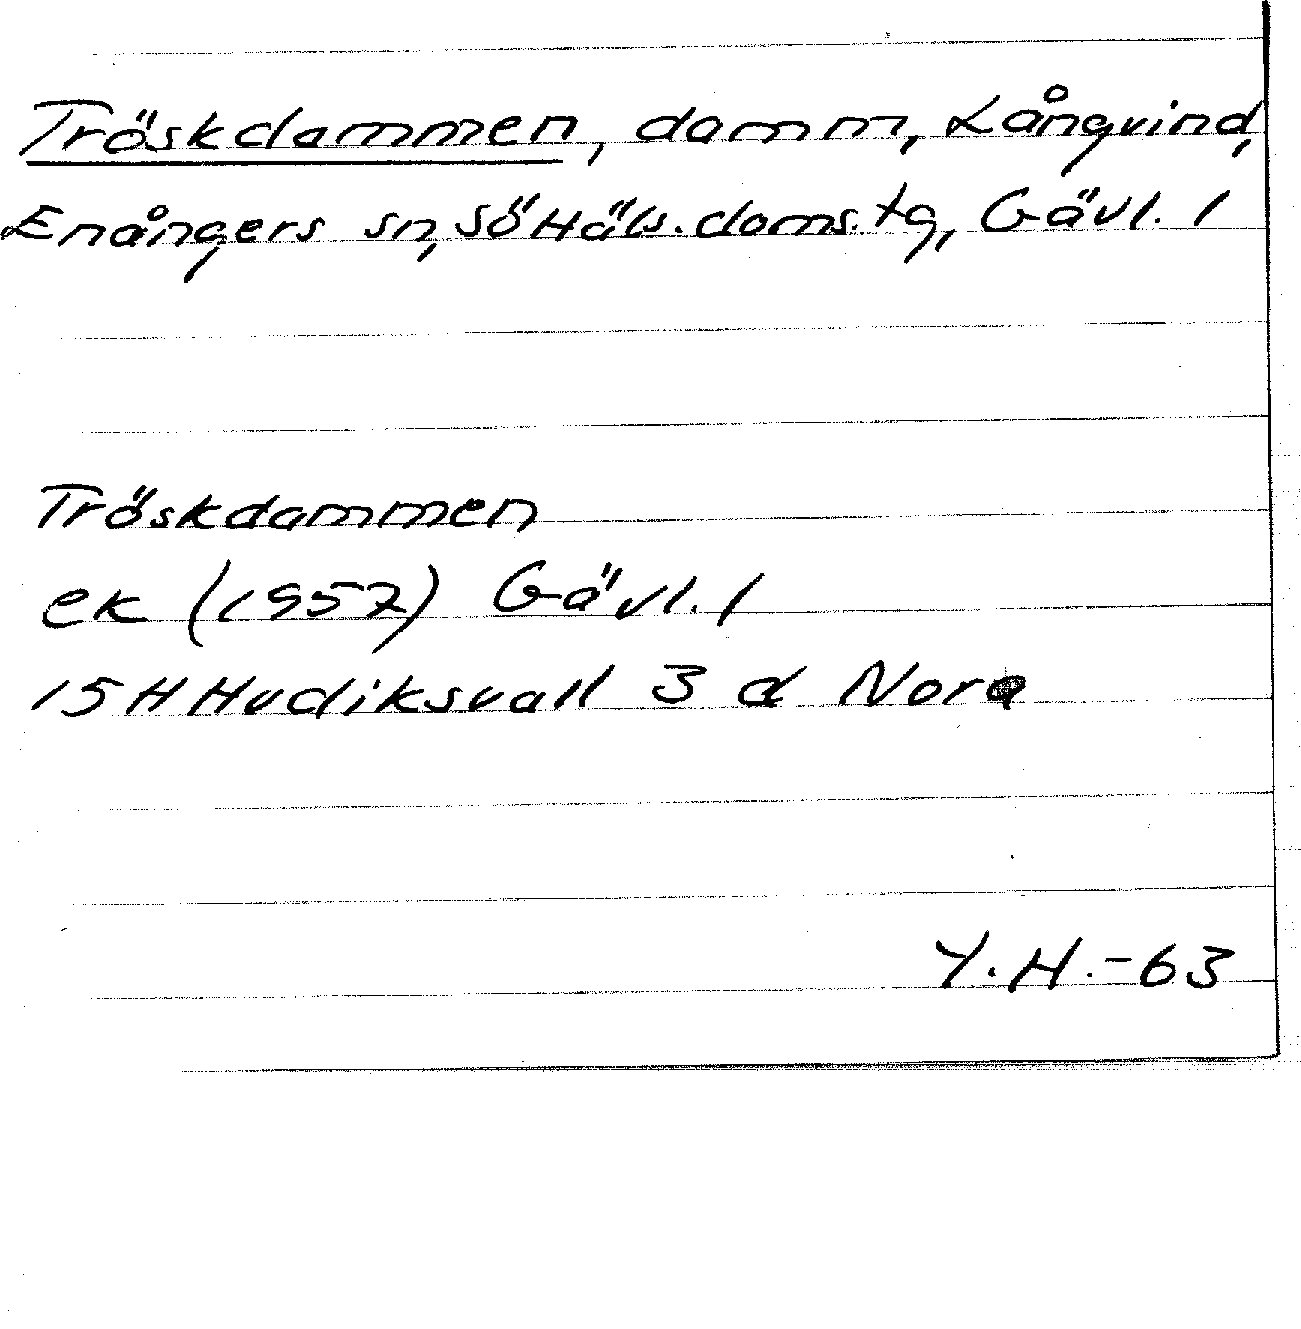 Tröskdammen, damm, Långvind,
Enångers sn, Sö Häls. doms. tg, Gävl. l
Tröskdammen
ek (1957) Gävl. l
15 H Hudiksvall 3 d Nora
Y.H.-63